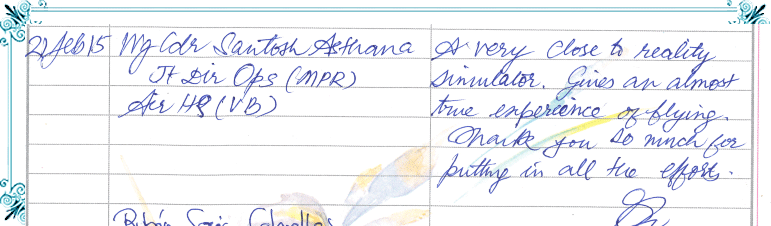 21 Feb 15 Wg Cdr Santosh Asthana
Jt Dir Ops (MPR)
Air HQ (VB)
A very close to reality
simulator. Gives an almost
true experience of flying.
Thank you so much for
putting in all the efforts.
Rubén